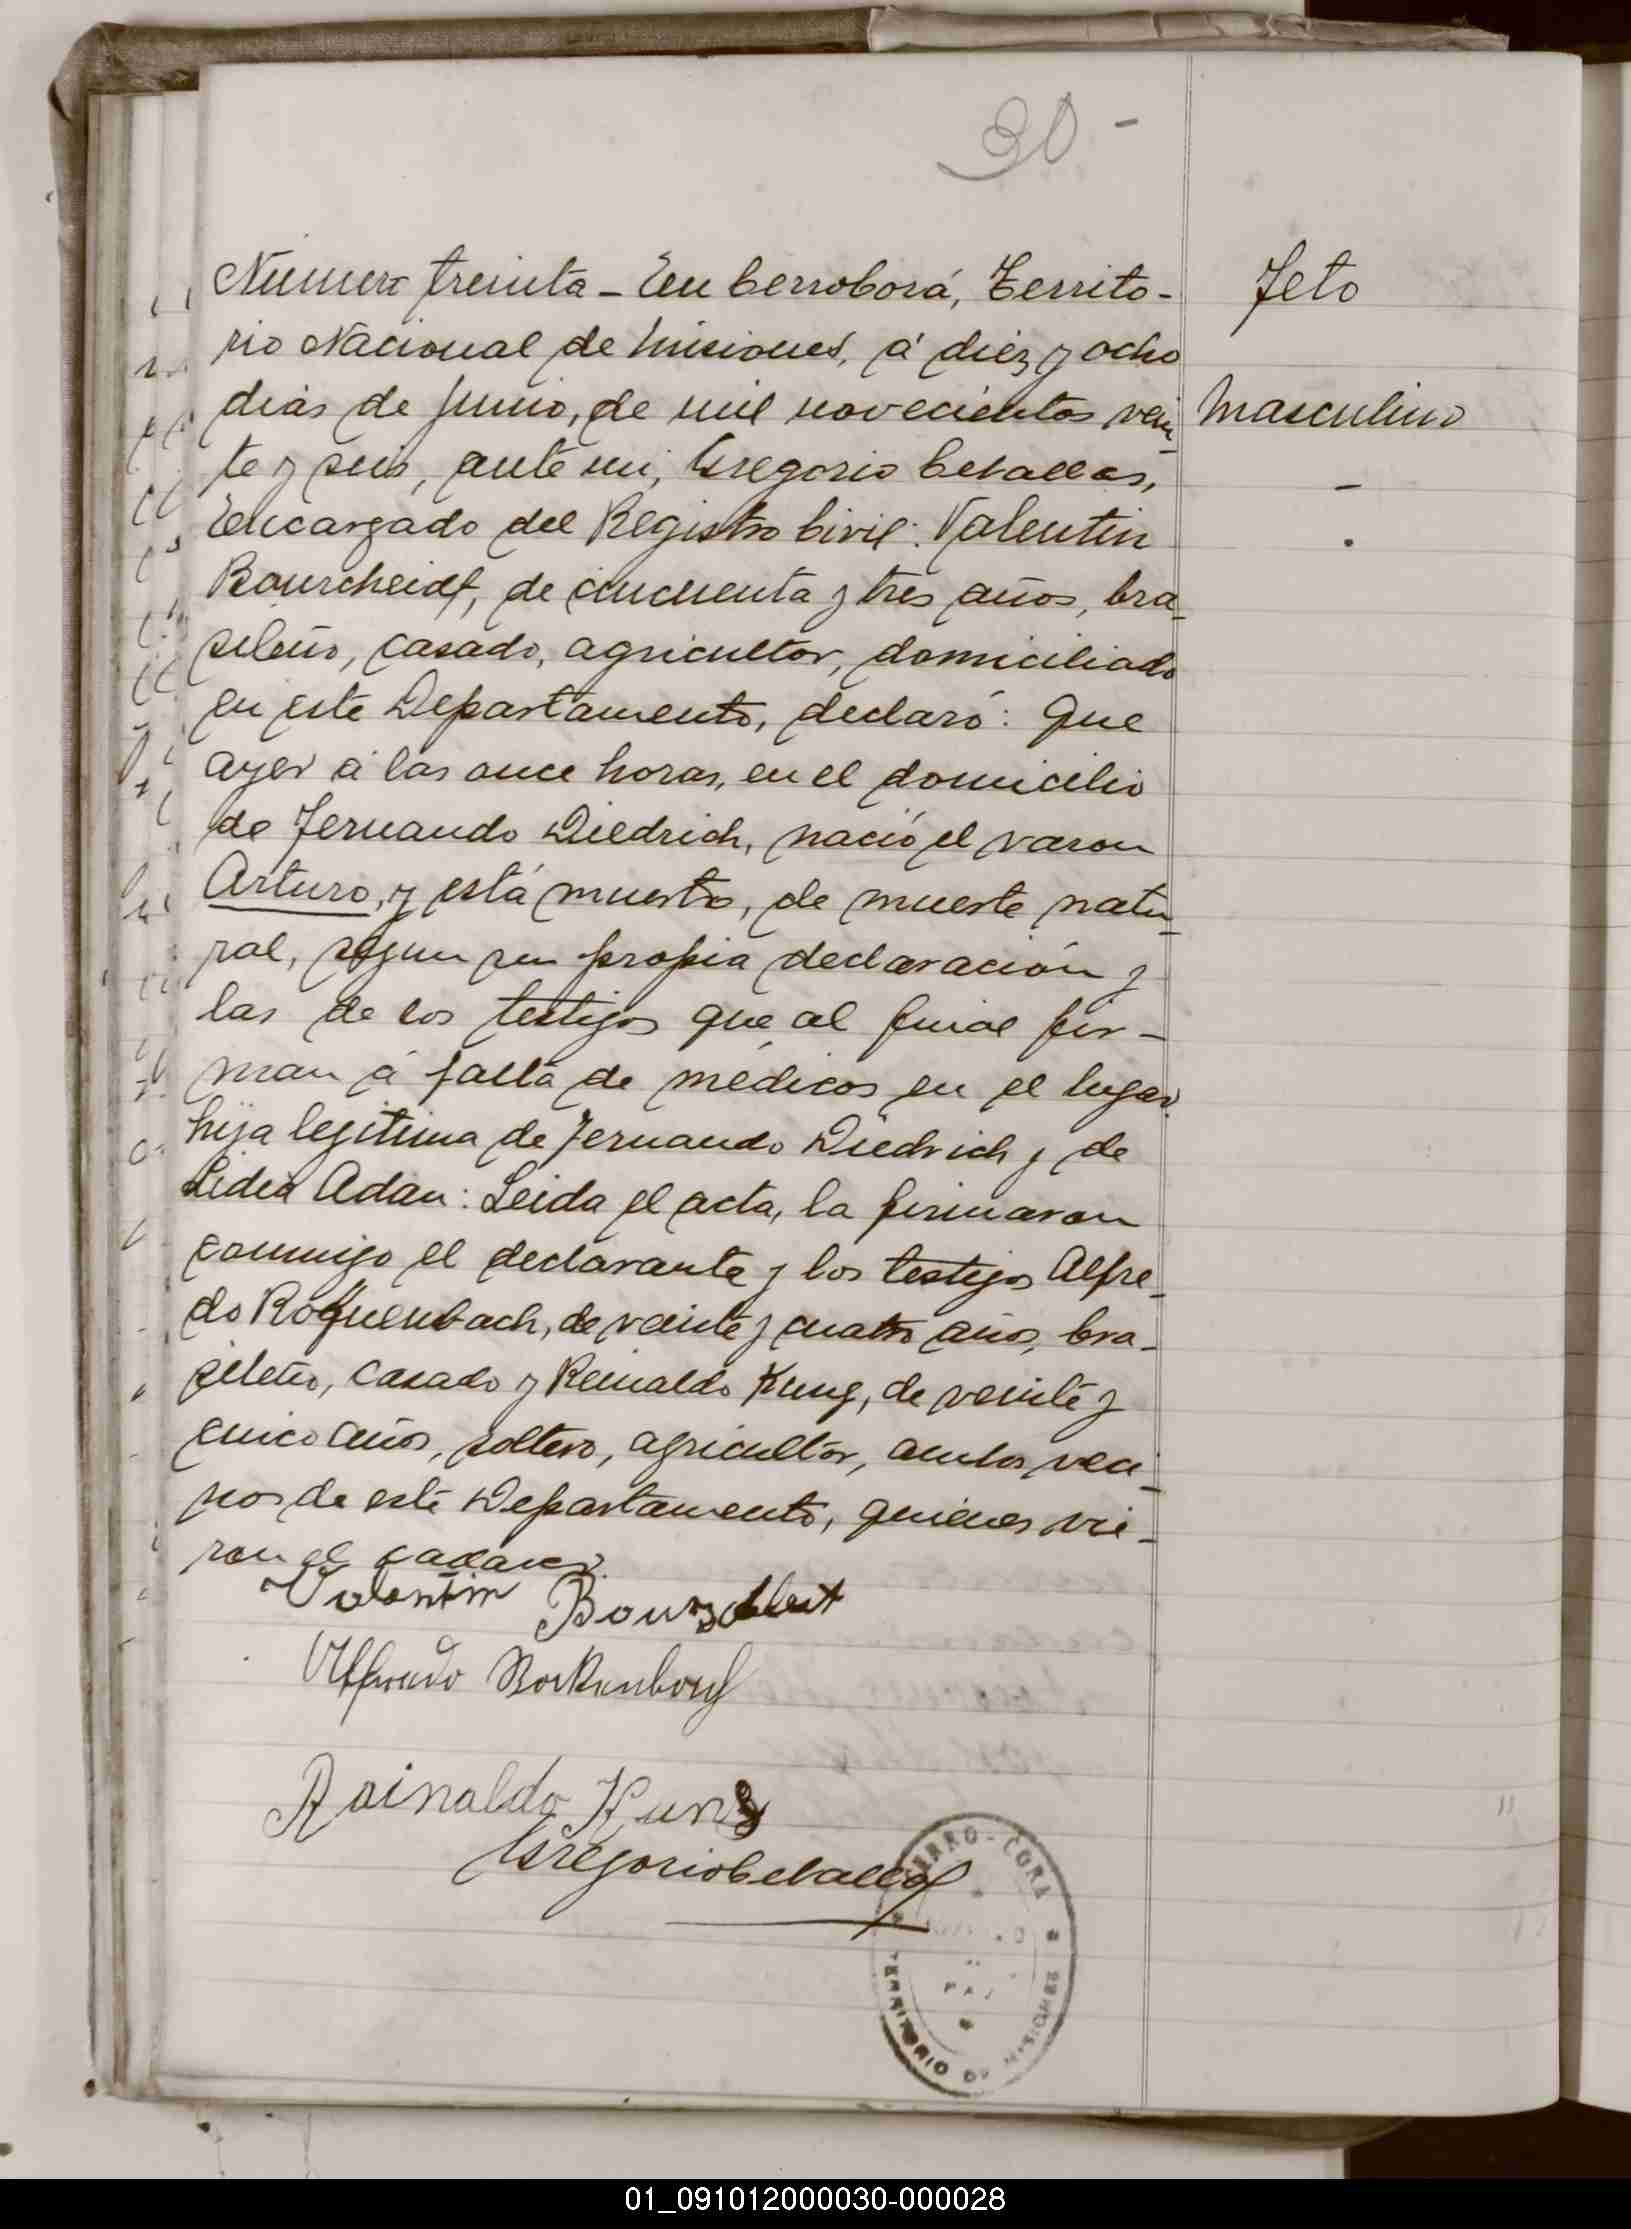 30-
Feto
Masculino
Número treinta - En Cerro Corá, Territo-
rio Nacional de Misiones, á diez y ocho
dias de Junio, de mil novecientos vein-
te y seis, ante mi, Gregorio
Encargado del Registro Civil: Valentin
Bourscheidt, de cincuenta y tres años, bra-
sileño, casado, agricultor, domiciliado
en este Departamento, declaró: Que
ayer á las once horas, en el domicilio
de Fernando Diedrich, nació el varon
Arturo, y está muerto, de muerte natu-
ral, segun su propia declaración y
las de los testigos que al final fir-
man á falta de médicos en el lugar
hija legitima de Fernando Diedrich y de
Lidia Adan: Leida el acta, la firmaron
conmigo el declarante y los testigos Alfre-
do Rokuenbach, de veinte y cuatro años, bra-
sileño, casado y Reinaldo Kung, de veinte y
cinco años, soltero, agricultor, ambos veci-
nos de este Departamento, quienes vie-
ron el cadaver.
Valentin
Alfredo
Rainaldo Kung
Gregorio
CERRO-CORÁ
TERRITORIO DE MISIONES
01_091012000030-000028